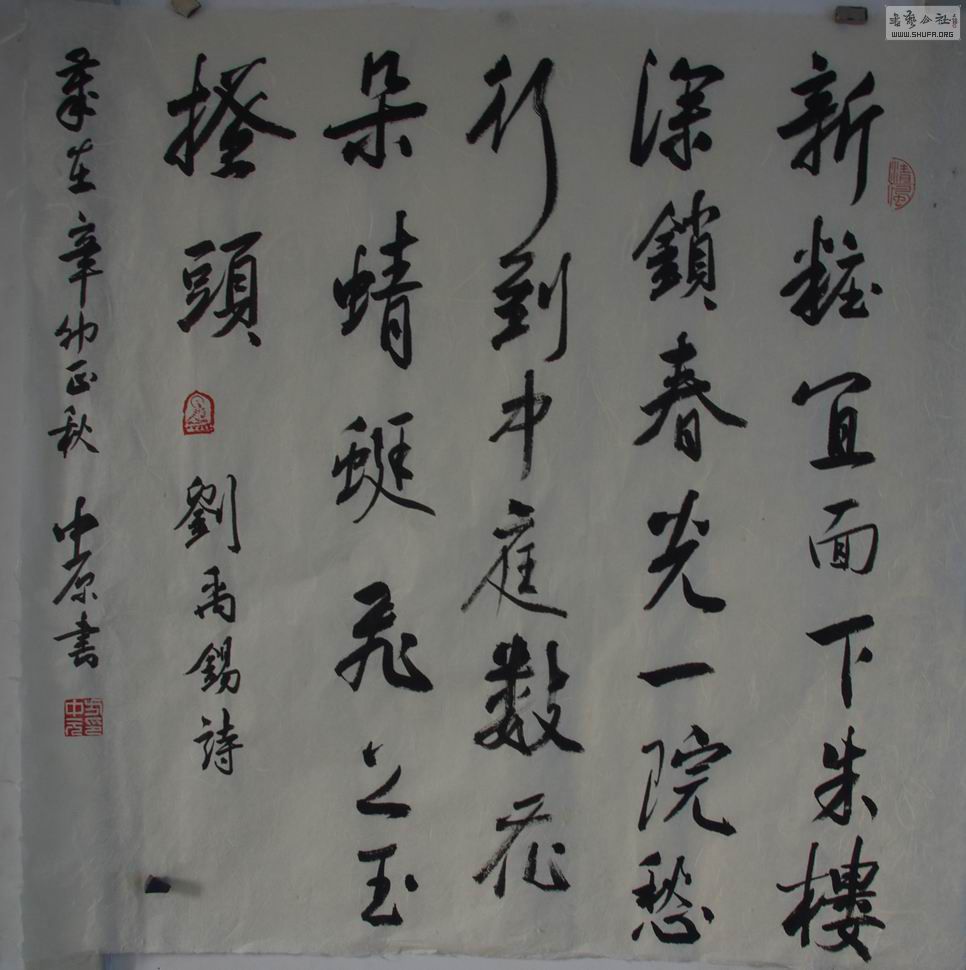 新粧宜面下朱樓
深鎖春光一院愁
行到中庭數花
朵蜻蜓飛上玉
搔頭 劉禹錫詩
歲在辛卯正秋 中原書
書藝公社
WWW.SHUFA.ORG